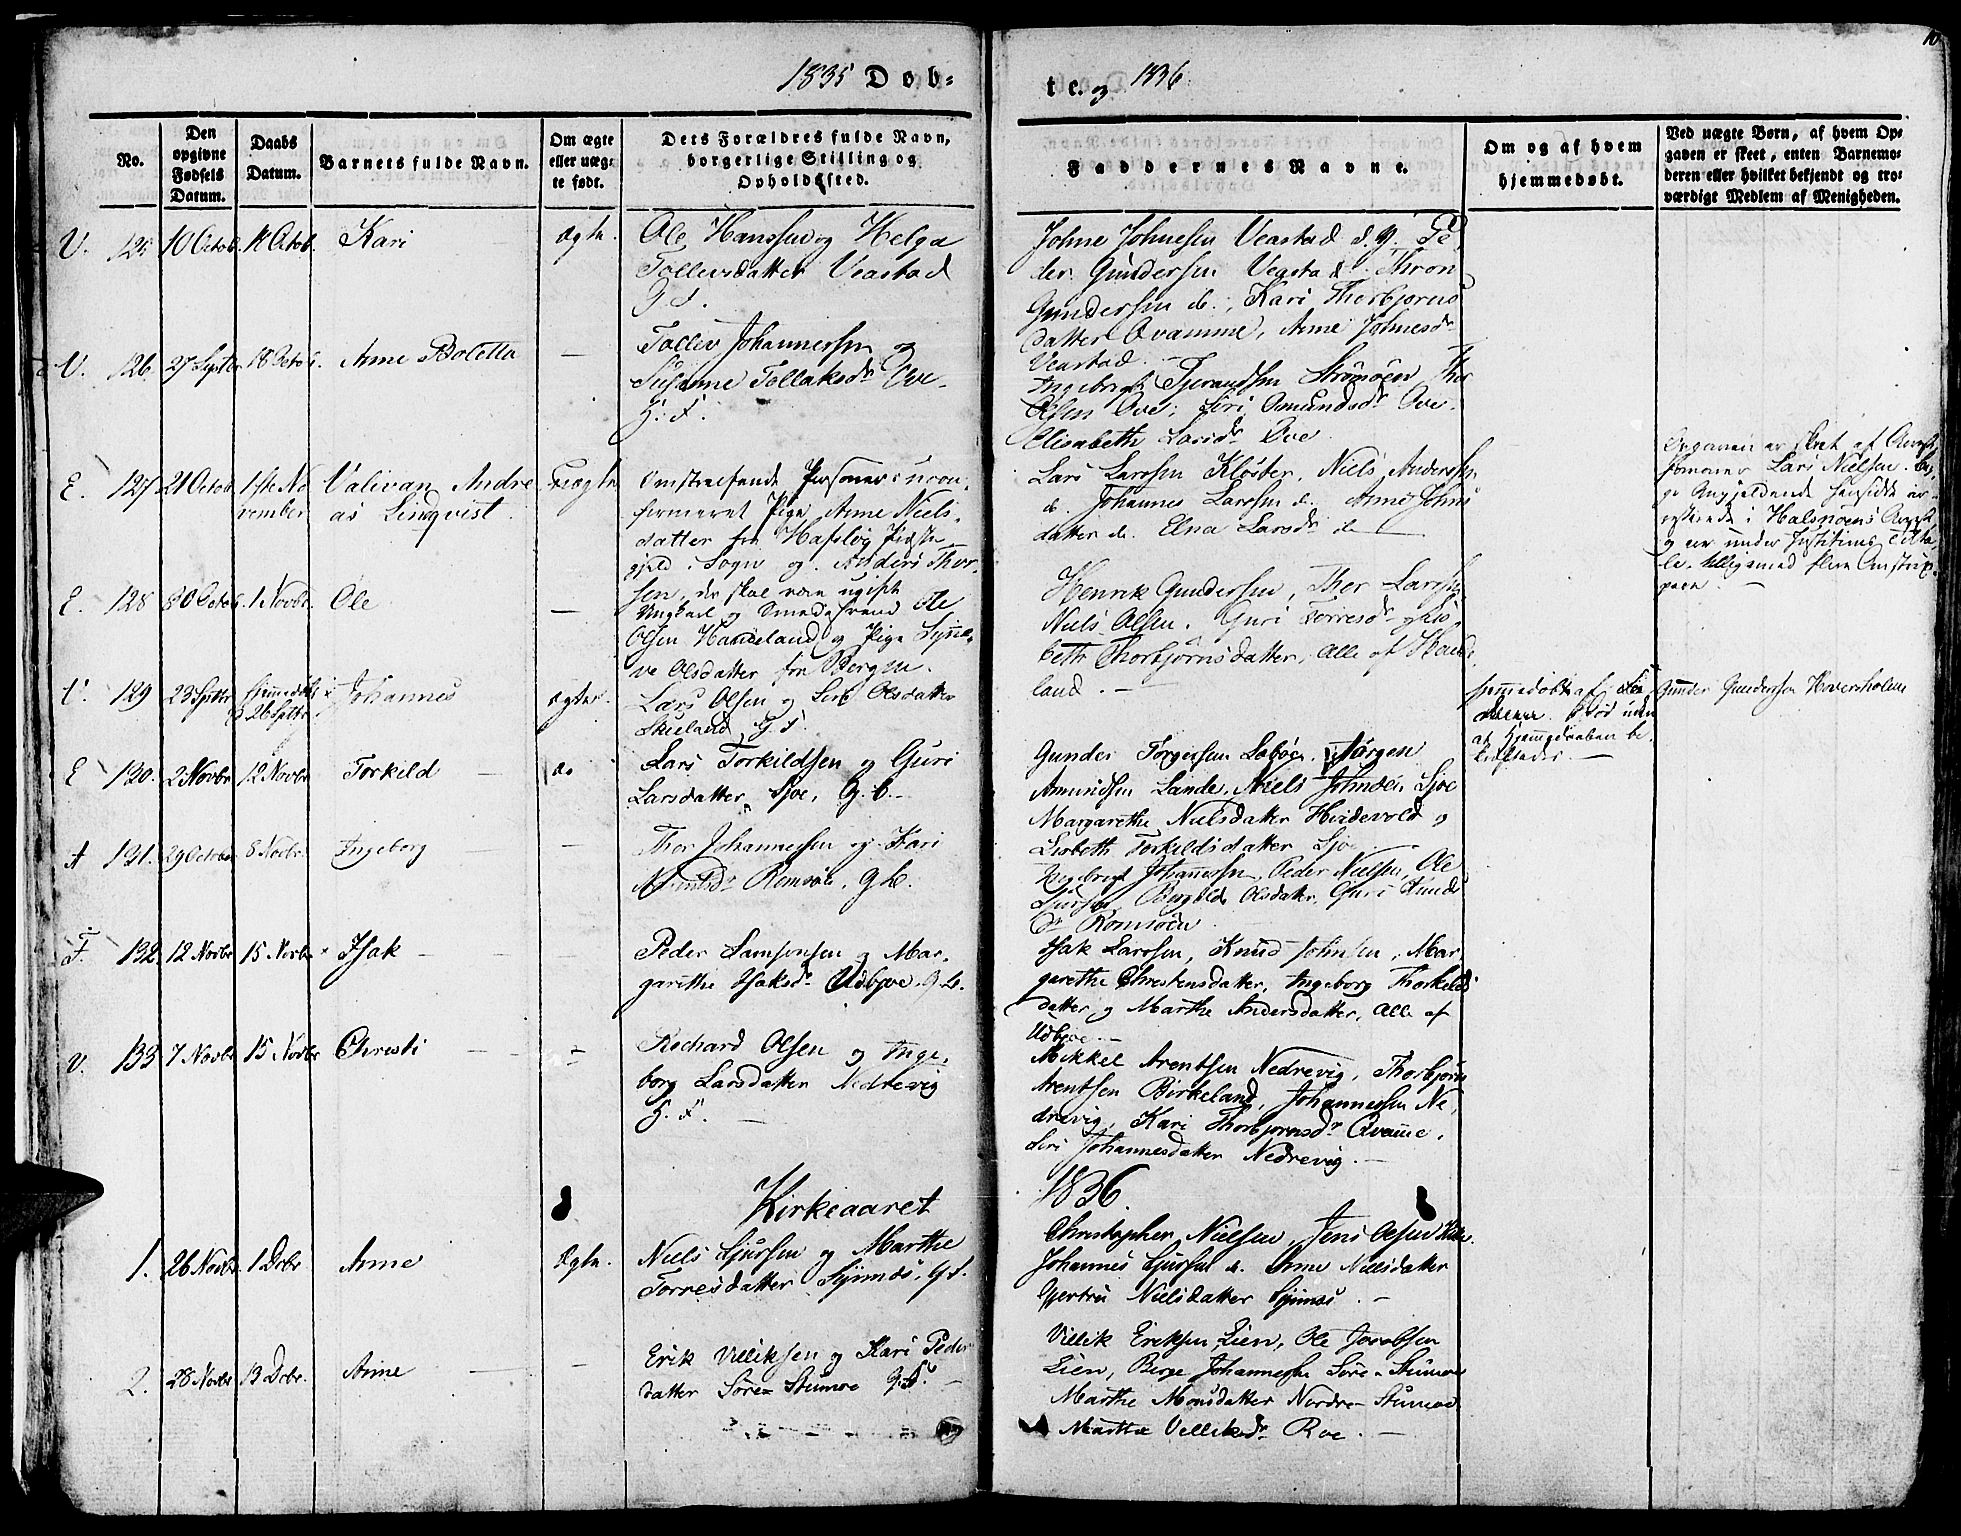 1835 Døb=
te. og 1836
10
No.
Den opgivne Fødsels Datum.
Daabs Datum.
Barnets fulde Navn.
Om ægte eller uæg=
te født.
Dets Forældres fulde Navn,
borgerlige Stilling og
Opholdssted.
Faddernes Navne.
Om og af hvem
hjemmedøbt.
Ved uægte Børn, af hvem Op=
gaven er skeet, enten Barnemo=
deren eller hvilket bekjendt og tro=
værdigt Medlem af Menigheden.
V. 125 10 Octob. 11 Octob. Kari ægte.
Ole Hanssen og Helga
Tollevsdatter Veastad
G. F.
Johne Johnesen Veastad s. G. Pe
der Gundersen Vegstad. Thron
Gundersen do., Kari Thorbjørns
datter Qvamme, Anne Johnesdr
Veastad. —
V. 126. 27 Septbr 18 Octob. Anne Boletta —
Tollev Johannessen og
Susanne Tollaksdr Ove.
H. F.
Ingebrigt Tjerandsen Strømøen Thor
Olsen Ove; Siri Omundsdr Ove.
Elisabeth Larsdr Ove.
E. 127 21 Octob. 1ste No
vember Valivan Andre
as Lindqvist. Uægte
Omstreifende Personer: ucon-
firmeret Pige Anne Niels-
datter fra Hafslog Præste
gjeld i Sogn og Anders Thor-
sen, der skal være ugift
Lars Larssen Kloster, Niels Anderssen
do. Johannes Larssen do. Anne Johns
datter do. Elna Larsdr do —
Opgaven er skeet af Arrest
forvarer Lars Nielsen. Beg-
ge Angjeldende hensidde ar-
resterede i Halsnøens Arrest
og ere under Justitiens Tilta-
le, tilligemed flere Omstrip-
pere. —
E. 128 30 Octob. 1 Novbr. Ole —
Ungkarl og Smedesvend Ole
Olsen Handeland og Pige Synne-
ve Olsdatter fra Bergen.
Henrik Gundersen, Thor Larssen
Niels Olsen. Guri Torresdr Lis
beth Thorbjørnsdatter, Alle af Hande
land. —
E. 129 23 Septbr Hjemmedøbt
26 Septbr Johannes ægte.
Lars Olsen og Siri Olsdatter
Skieland G. F.
Hjemmedøbt af
Død uden
at Hjemmedaaben be-
kræftedes. —
Gunder Gundersen Hoversholm
E 130. 2 Novbr 12 Novbr. Torkild — do
Lars Torkildsen og Guri
Larsdatter Sjoe, G. B. —
Gunder Torgersen Løbøe. Jørgen
Amundsen Lande. Niels Johnsen Sjoe
Margarethe Nielsdatter Hvidevold og
Lisbeth Torkildsdatter Sjoe
A 131. 29 Octobr 8 Novbr. Ingeborg — —
Thor Johannessen og Kari
Romsøe. G. B.
Ingebrigt Johannessen, Peder Nielsen, Ole
Sjursen, Bergilde Olsdatter, Guri Knuds
Dr Romsøen
F. 132. 12 Novbr 15 Novbr. Isak — —
Peder Samsonsen og Mar-
garethe Isaksdr Udbjoe G. B.
Isak Larssen, Knud Johnsen, Mar
garethe Christensdatter, Ingeborg Thorkelds
datter og Marthe Andersdatter, Alle af
Udbjoe. —
V. 133 7 Novbr 15 Novbr Christi — —
Richard Olsen og Inge-
borg Larsdatter Nedrevig
H. F. —
Mikkel Arentsen Nedrevig, Thorbjørn
Arentsen Birkeland, Johannessen Ne
drevig, Kari Thorbjørnsdr Qvamme.
Siri Johannesdatter Nedrevig. —
Kirkeaaret 1836.
1. 26 Novbr. 1 Dcbr. Anne Ægte.
Niels Sjursen og Marthe
Torresdatter Synnæs. G. F.
Christopher Nielsen, Jens Olsen
Johannes Sjursen do. Anne Nielsdatter
Gjertru Nielsdatter Synnæs. —
2. 28 Novbr 13 Dcbr. Anne — —
Erik Villiksen og Kari Peder
datter Søre-Stumoe G. F. —
Villik Eriksen Lien, Ole Jacobsen
Lien, Berge Johannesen Søre-Stumoe
Marthe Monsdatter Nordre-Stumoe
Marthe Villiksdr Roe. —